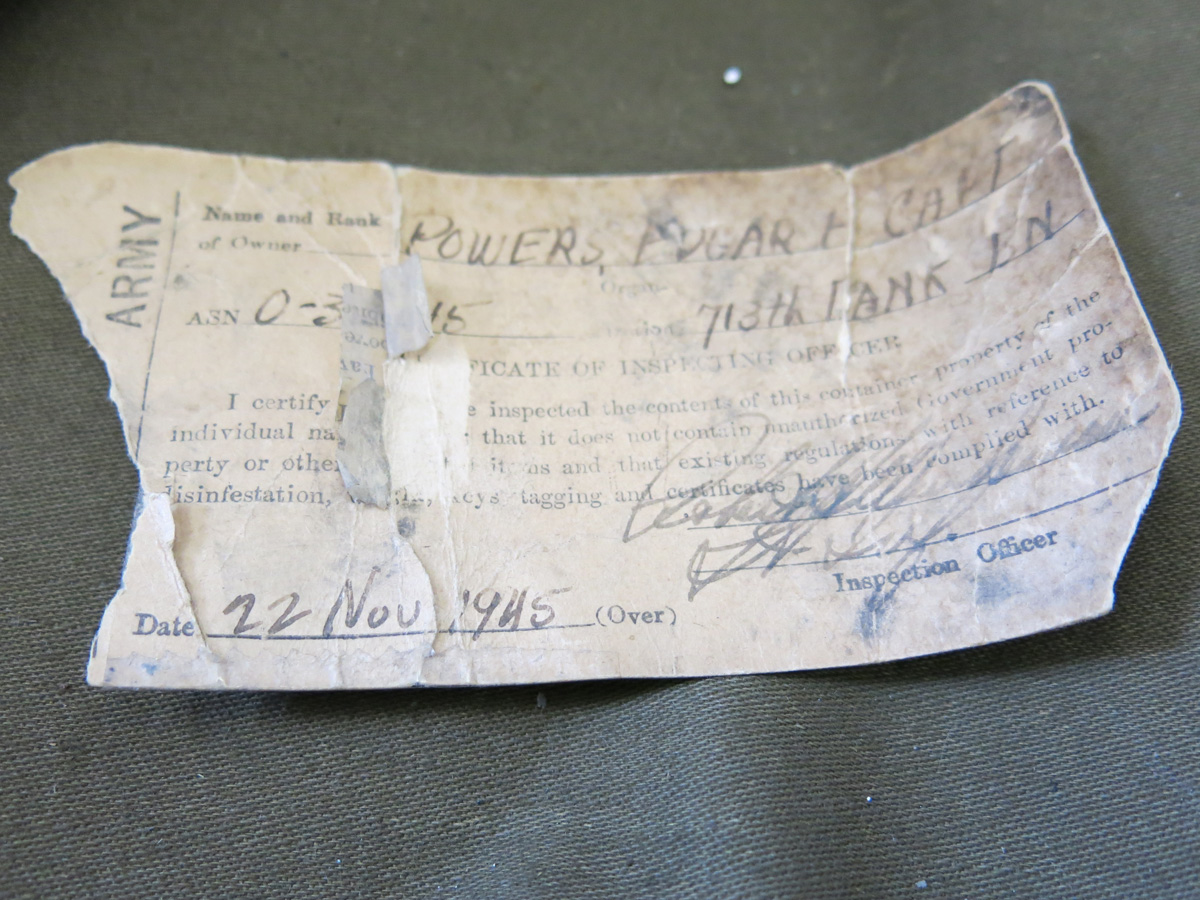 ARMY
Name and Rank
of Owner POWERS, EDGAR F CAPT
Organ
ASN O-3 15 713th TANK BN
FICATE OF INSPECTING OFFICER
I certify e inspected the contents of this container, property of the
individual na that it does not contain unauthorized Government pro-
perty or other items and that existing regulations with reference to
disinfestation, keys tagging and certificates have been complied with.
Inspection Officer
Date 22 Nov 1945 (Over)